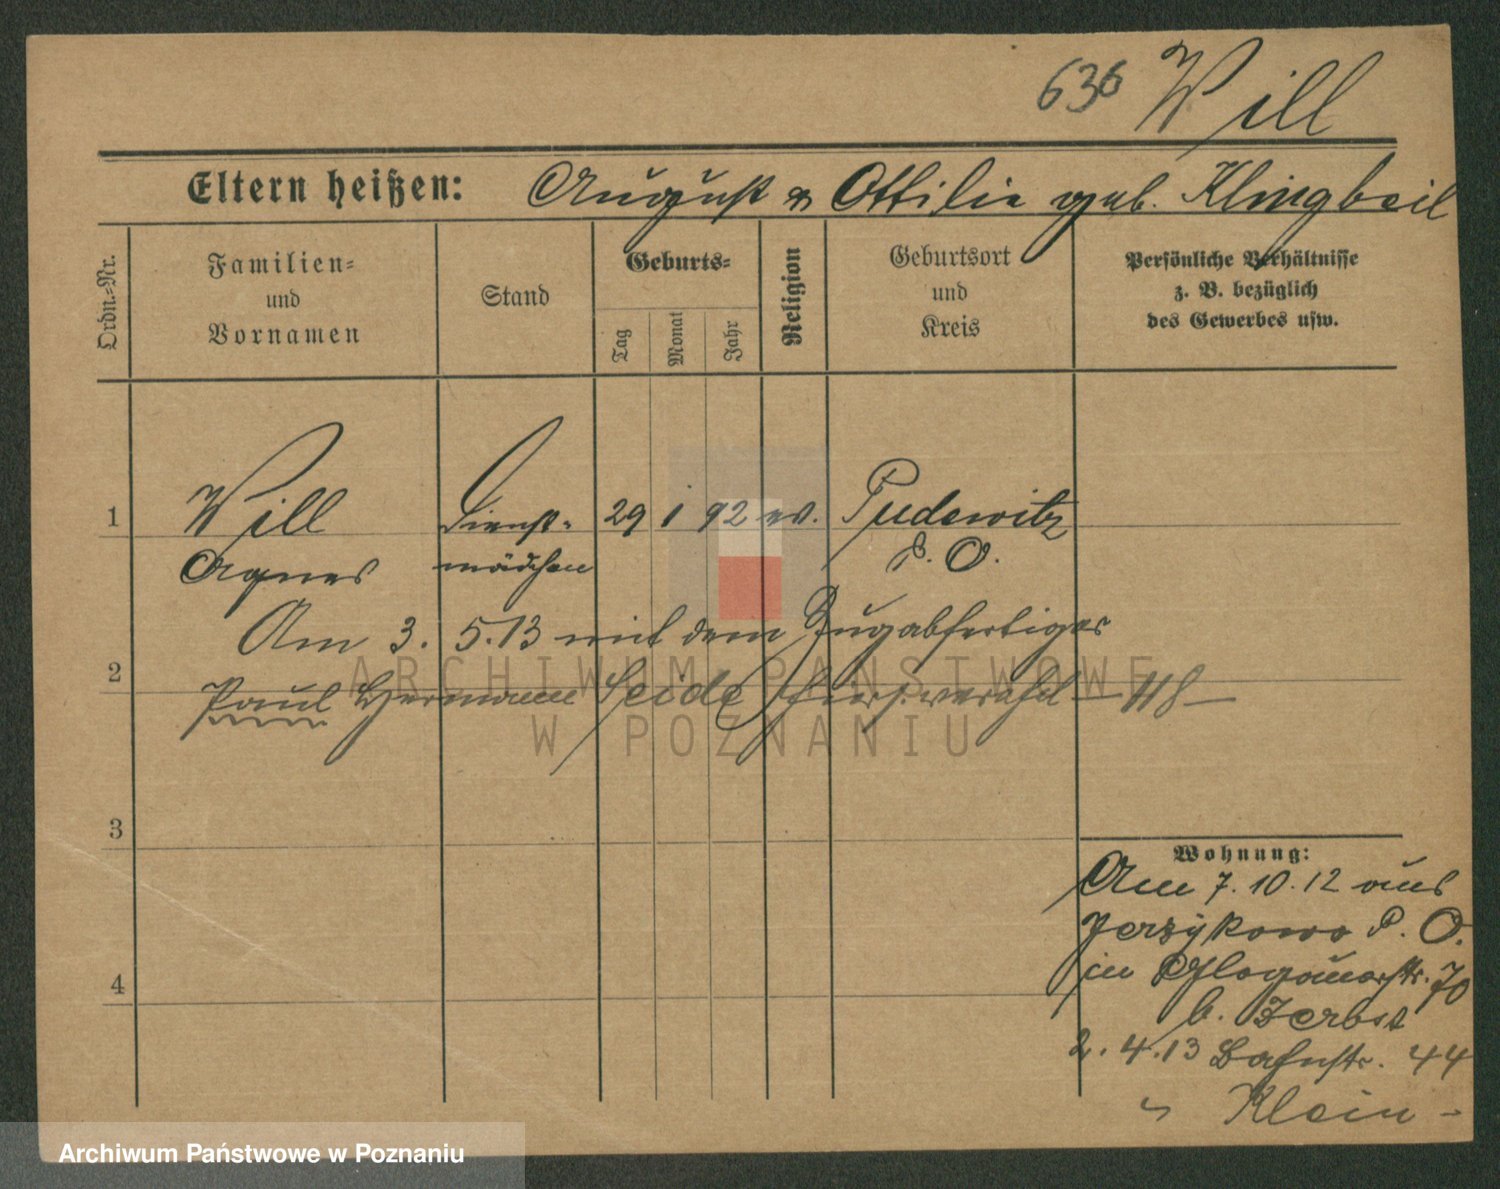 636 Will
Eltern heißen: August & Ottilie geb. Klingbeil
Ordn.=Nr.
Familien=
und
Vornamen
Stand
Geburts=
Tag
Monat
Jahr
Religion
Geburtsort
und
Kreis
Persönliche Verhältnisse
z. B. bezüglich
des Gewerbes usw.
1 Will Dienst= 29 1 92 ev. Pudewitz
Agnes mädchen P. O.
Am 3. 5.13 mit dem Zugabfertiger
2
Paul Hermann Seide hier verehl
ARCHIWUM PAŃSTWOWE
W POZNANIU
3
Wohnung:
Am 7. 10. 12 aus
Jerzykowo P. O.
4
in Glogauerstr. 70
b. Zerbst
2. 4. 13 Bahnstr. 44
" Klein -
Archiwum Państwowe w Poznaniu